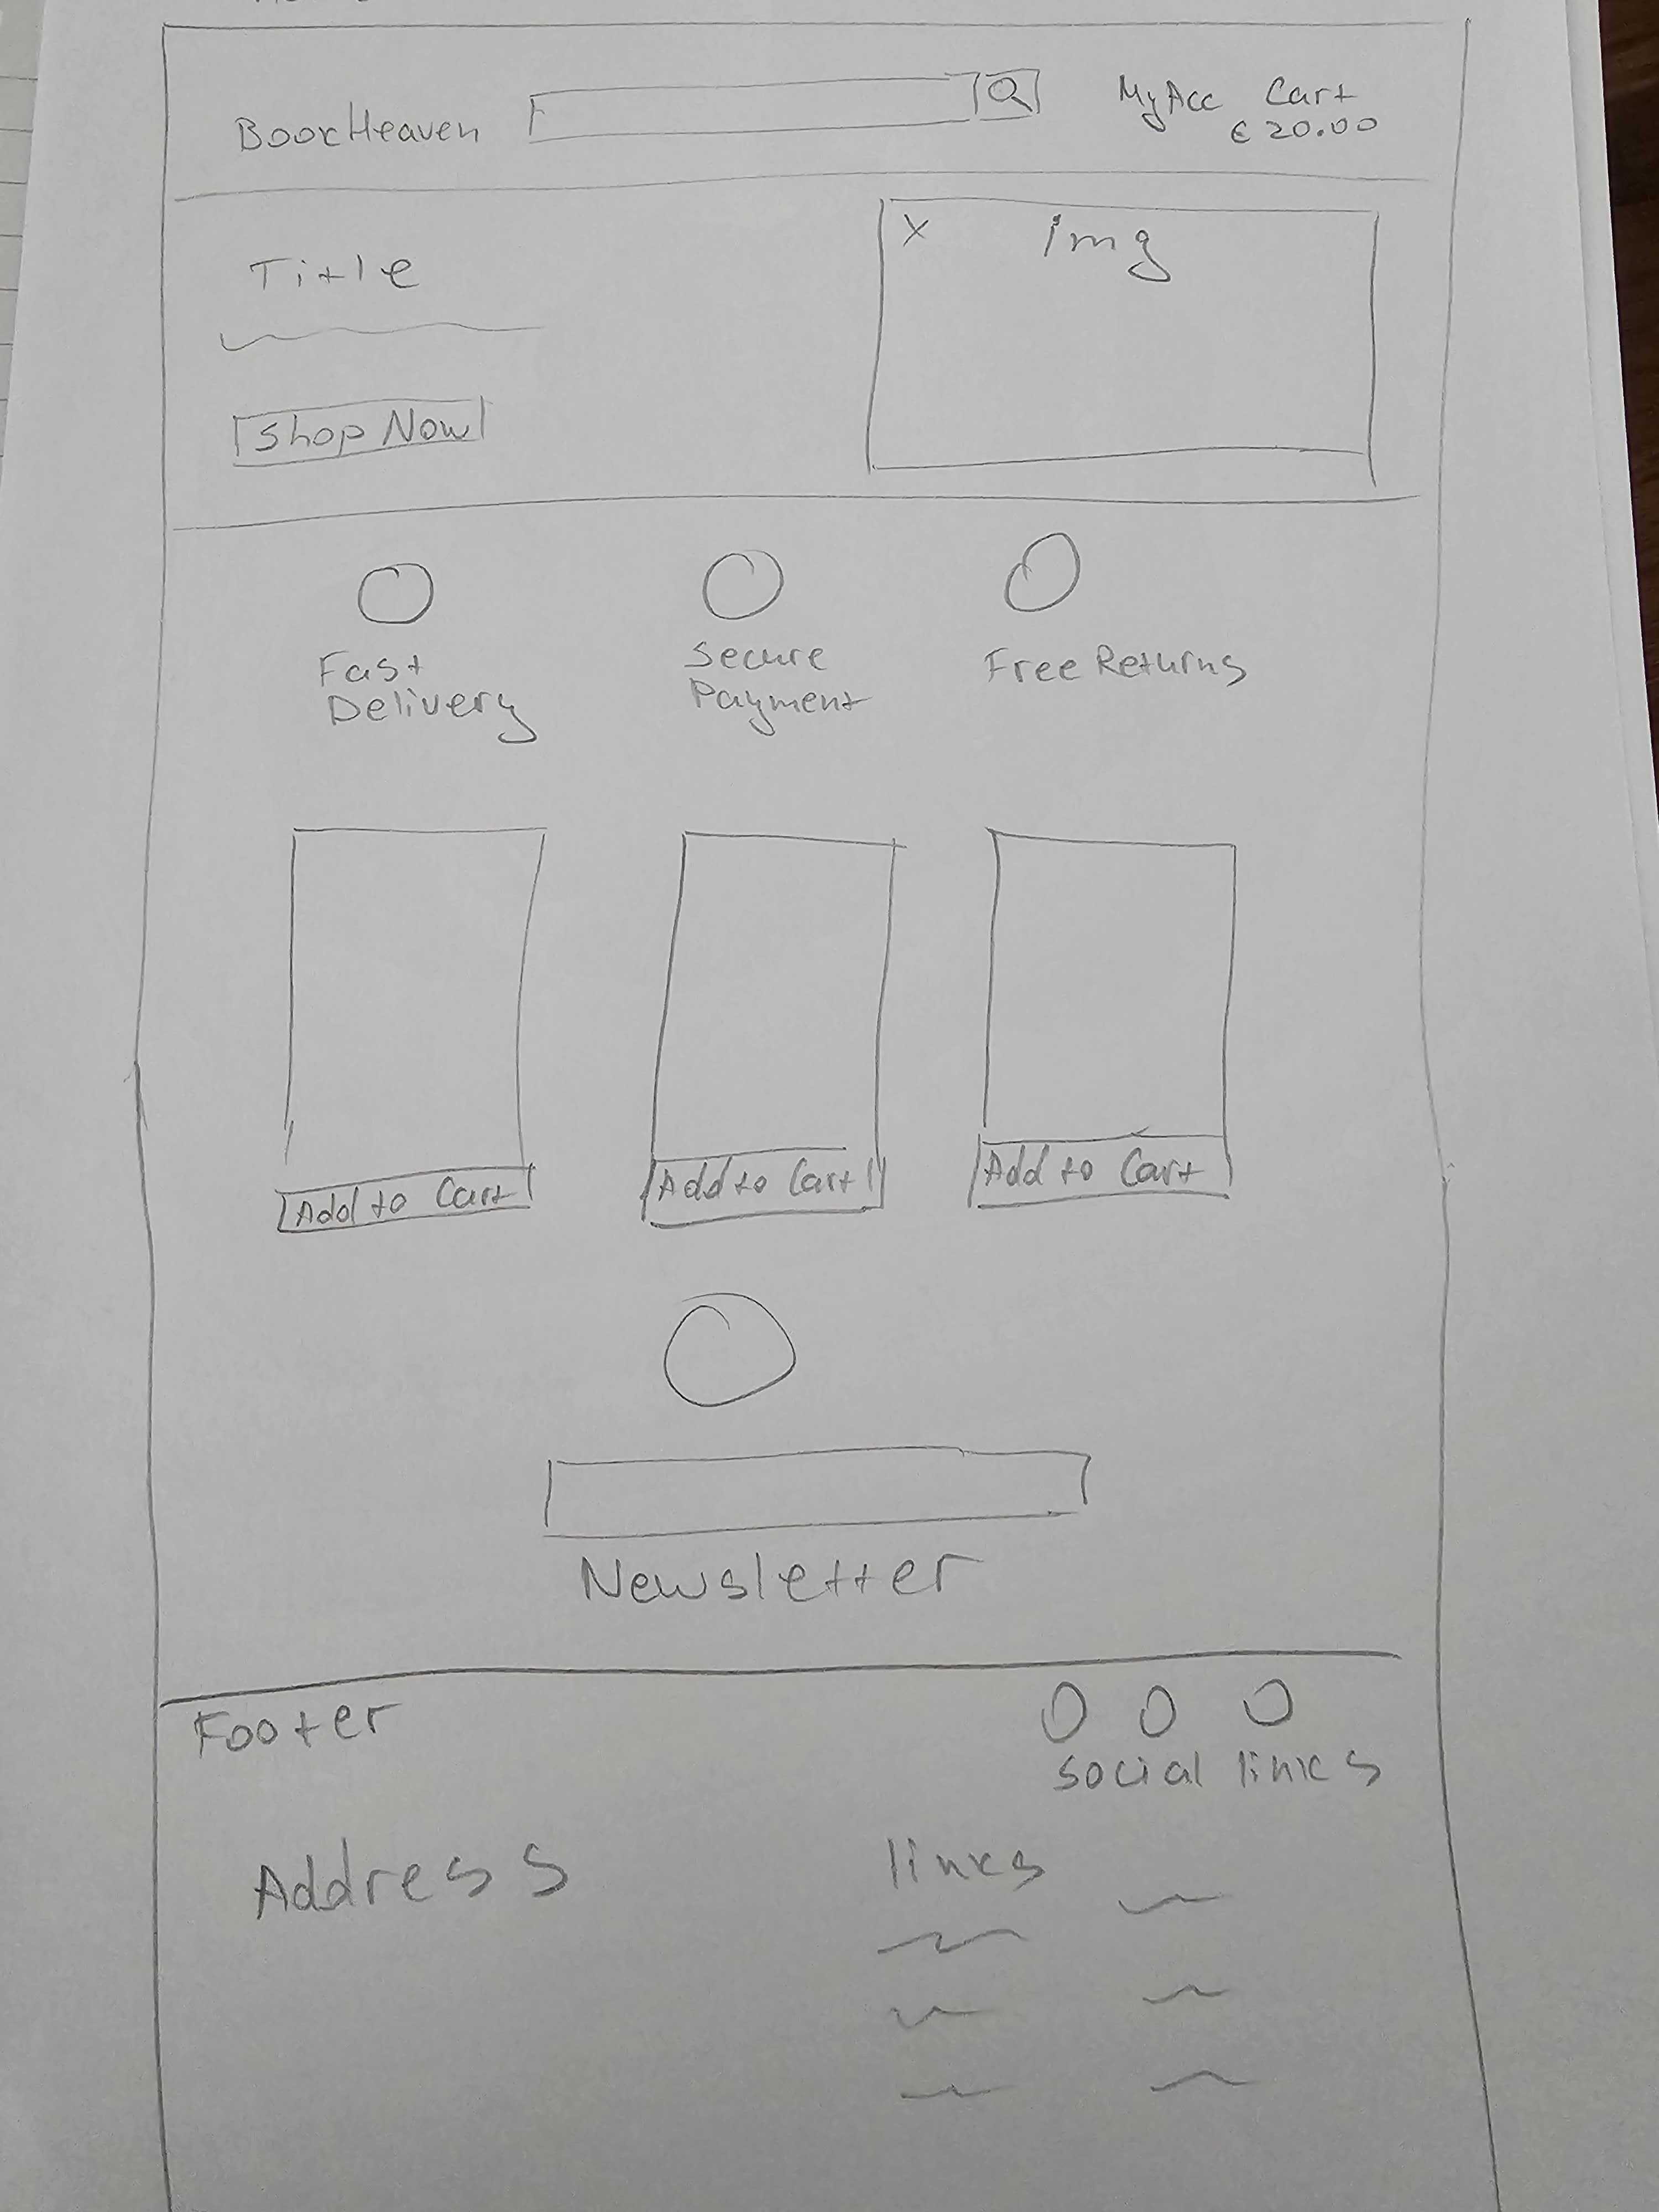 BookHeaven
MyAcc Cart
€ 20.00
Title
x img
Shop Now
Fast
Delivery
Secure
Payment
Free Returns
Add to Cart
Add to Cart
Add to Cart
Newsletter
Footer
social links
Address
links